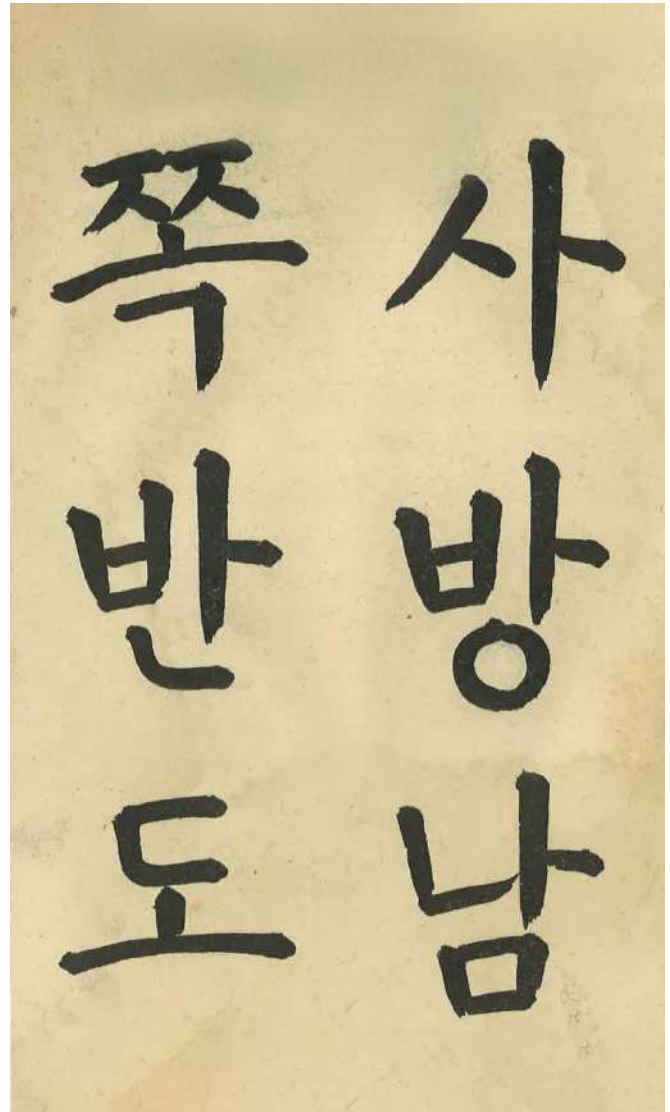 사방남
쪽반도